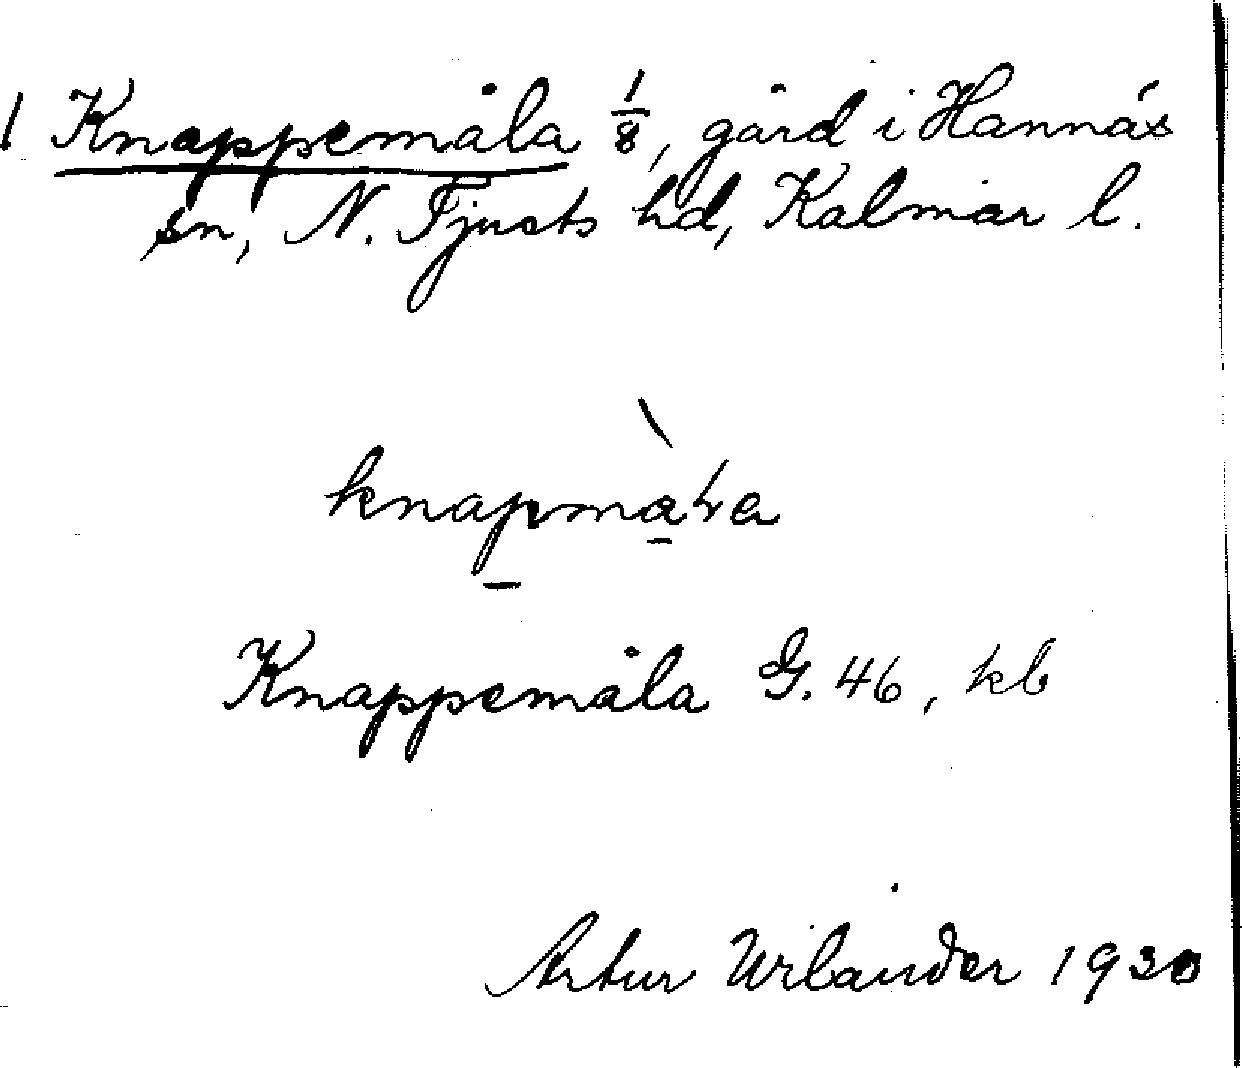 1 Knappemåla 1/8, gård i Hannäs
sn, N. Tjusts hd, Kalmar l.
knapmala
Knappemåla G. 46, kb
Artur Wilander 1930